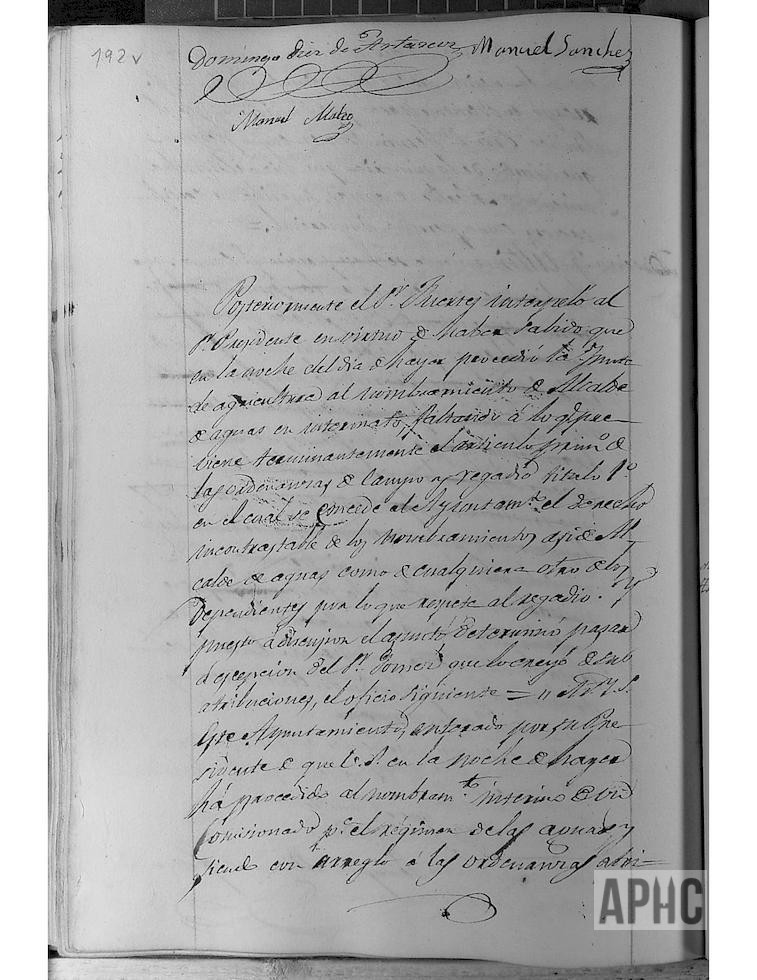 192v
Domingo Diez de Astarcur Manuel Sanchez
Manuel Mateo
Posteriormente el Sr. Fuertes interpeló al
Sr. Presidente en virtud de haber sabido que
en la noche del dia de hayer procedió la Junta
de agricultura al nombramiento de Alcalde
de aguas en interinato, faltando á lo q.e pre-
biene terminantemente el articulo prim.o de
las ordenanzas de campo y regadio titulo 1.o
en el cual se concede al Ayuntam.to el derecho
incontrastable de los nombramientos asi de Al-
calde de aguas como de cualquiera otro de los
dependientes por lo que respeta al regadio. Y
puesto á discusion el asunto determinó pasar
á escepcion del Sr. que lo creyó de sus
atribuciones, el oficio siguiente = "
Ayuntamiento, enterado por su Pre-
sidente de que V.S. en la noche de hayer
há procedido al nombram.to interino de un
Comisionado p.a el régimen de las aguas y
siendo con arreglo á las ordenanzas atri-
APHC